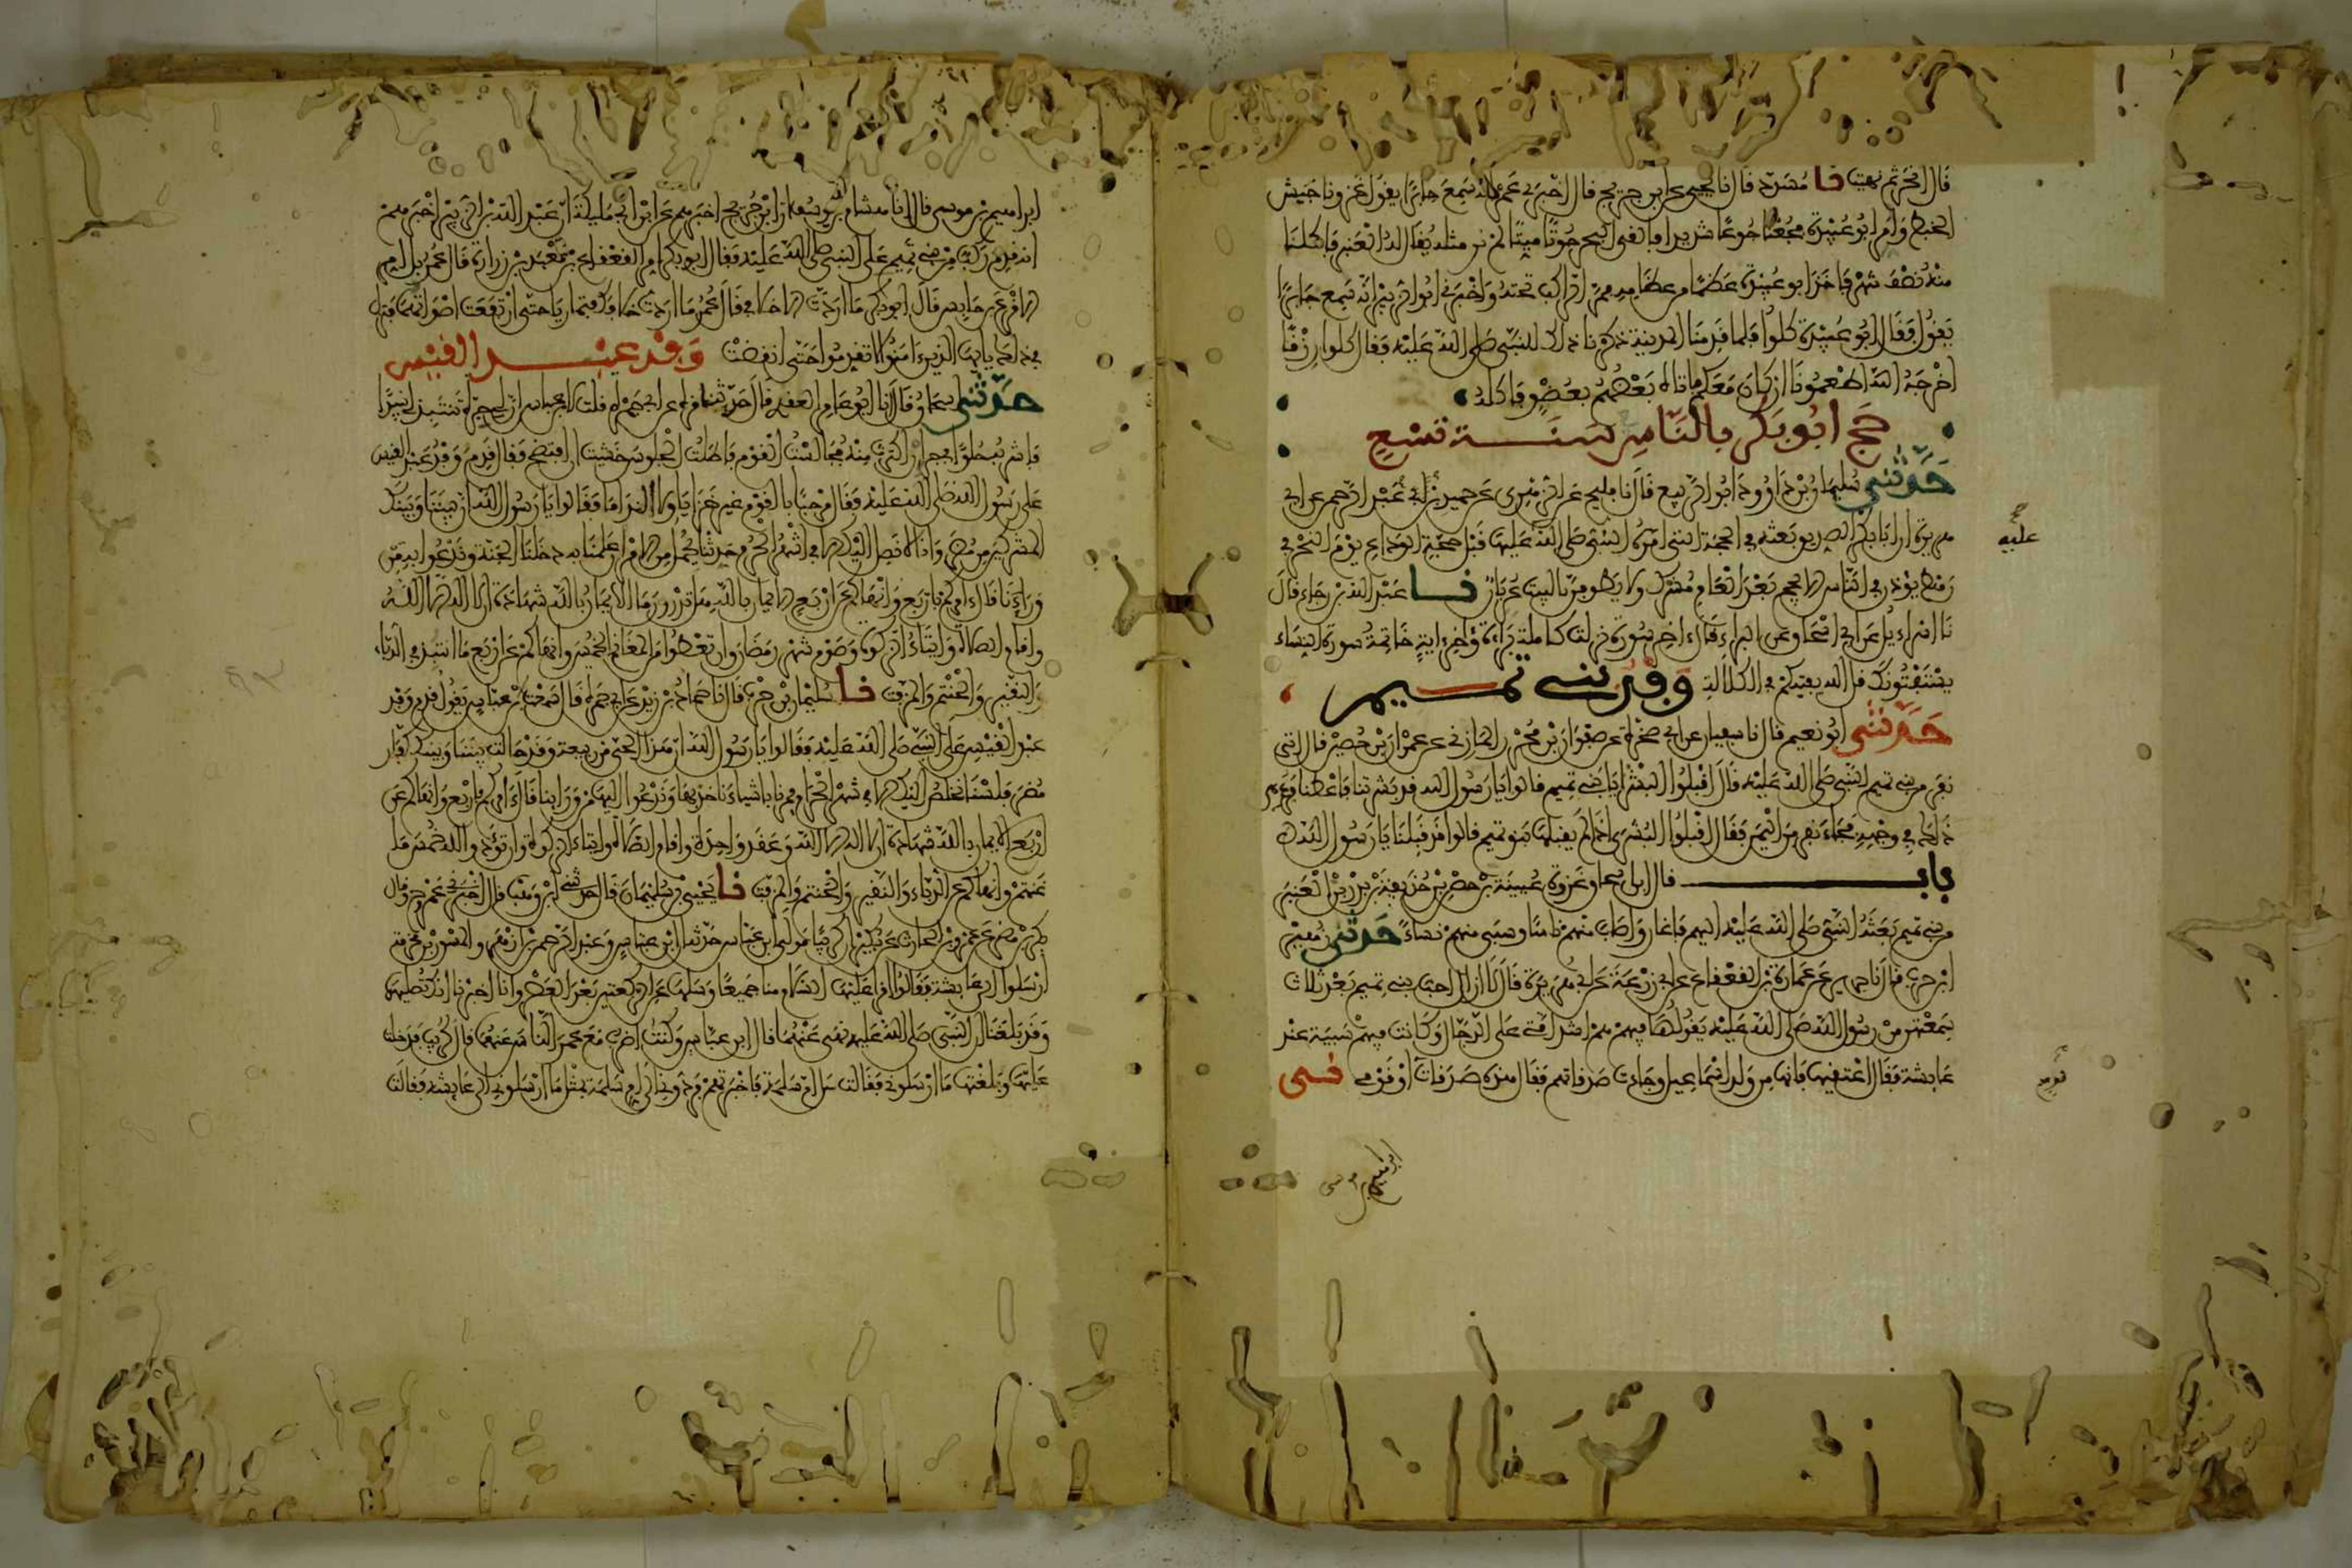 قال انحر ثم نهيت نا مسدد قال نا يحيى عن ابن جريج قال اخبرني عمرو انه سمع جابرا يقول غزونا جيش
الخبط وامر ابو عبيدة فجعنا جوعا شديدا فالقى البحر حوتا ميتا لم نر مثله يقال له العنبر فاكلنا
منه نصف شهر فاخذ ابو عبيدة عظما من عظامه فمر الراكب تحته واخبرني ابو الزبير انه سمع جابرا
يقول فقال ابو عبيدة كلوا فلما قدمنا المدينة ذكرنا ذلك للنبي صلى الله عليه فقال كلوا رزقا
اخرجه الله اطعمونا ان كان معكم فاتاه بعضهم بعضو فاكله
حج ابو بكر بالناس سنة تسع
حدثني سليمان بن داود ابو الربيع قال نا فليح عن الزهري عن حميد بن عبد الرحمن عن ابي
هريرة ان ابا بكر الصديق بعثه في الحجة التي امره النبي صلى الله عليها قبل حجة الوداع يوم النحر في
رهط يؤذن في الناس لا يحج بعد العام مشرك ولا يطوفن بالبيت عريان نا عبد الله بن رجاء قال
نا اسراءيل عن ابي اسحاق عن البراء قال ءاخر سورة نزلت كاملة براءة وءاخر ءاية خاتمة سورة النساء
يستفتونك قل الله يفتيكم في الكلالة وفد بني تميم
حدثني ابو نعيم قال نا سفيان عن ابي صخرة عن صفوان بن محرز المازني عن عمران بن حصين قال اتى
نفر من بني تميم النبي صلى الله عليه قال اقبلوا البشرى يا بني تميم قالوا يا رسول الله قد بشرتنا فاعطنا فرءي
ذلك في وجهه فجاء نفر من اليمن فقال اقبلوا البشرى اذ لم يقبلها بنو تميم قالوا قد قبلنا يا رسول الله
باب قال ابن اسحاق غزوة عيينة بن حصن بن حذيفة بن بدر بني العنبر
من بني تميم بعثه النبي صلى الله عليه اليهم فاغار واصاب منهم ناسا وسبى منهم نساء حدثني زهير بن
حرب قال نا جرير عن عمارة بن القعقاع عن ابي زرعة عن ابي هريرة قال لا ازال احب بني تميم بعد ثلاث
سمعتهن من رسول الله صلى الله عليه يقولها فيهم هم اشد امتي على الدجال وكانت فيهم سبية عند
عايشة فقال اعتقيها فانها من ولد اسماعيل وجاءت صدقاتهم فقال هذه صدقات قوم او قومي نى
عليه
قوم
ابراهيم بن موسى
ابراهيم بن موسى قال نا هشام بن يوسف ان ابن جريج اخبرهم عن ابن ابي مليكة ان عبد الله بن الزبير اخبرهم
انه قدم ركب من بني تميم على النبي صلى الله عليه فقال ابو بكر امر القعقاع بن معبد بن زرارة قال عمر بل امر
الاقرع بن حابس قال ابو بكر ما اردت الا خلافي قال عمر ما اردت خلافك فتماريا حتى ارتفعت اصواتهما فنزل
في ذلك يايها الذين ءامنوا لا تقدموا حتى انقضت وفد عبد القيس
حدثني اسحاق قال نا ابو عامر العقدي قال حدثنا قرة عن ابي جمرة قلت لابن عباس ان لي جرة تنتبذ لي نبيذا
فاشربه حلوا في جر ان اكثرت منه فجالست القوم فاطلت الجلوس خشيت ان افتضح فقال قدم وفد عبد القيس
على رسول الله صلى الله عليه فقال مرحبا بالقوم غير خزايا ولا الندامى فقالوا يا رسول الله ان بيننا وبينك
المشركين من مضر وانا لا نصل اليك الا في اشهر الحرم حدثنا بجمل من الامر ان عملنا به دخلنا الجنة وندعوا به من
وراءنا قال ءامركم باربع وانهاكم عن اربع الايمان بالله هل تدرون ما الايمان بالله شهادة ان لا اله الا الله
واقام الصلاة وايتاء الزكوة وصوم شهر رمضان وان تعطوا من المغانم الخمس وانهاكم عن اربع ما انتبذ في الدباء
والنقير والحنتم والمزفت نا سليمان بن حرب قال نا حماد بن زيد عن ابي جمرة قال سمعت ابن عباس يقول قدم وفد
عبد القيس على النبي صلى الله عليه فقالوا يا رسول الله ان هذا الحي من ربيعة وقد حالت بيننا وبينك كفار
مضر فلسنا نخلص اليك الا في شهر الحرام فمرنا باشياء ناخذ بها وندعوا اليها من وراينا قال ءامركم باربع وانهاكم عن
اربع الايمان بالله شهادة ان لا اله الا الله وعقد واحدة واقام الصلاة وايتاء الزكوة وان تؤدوا لله خمس ما
غنمتم وانهاكم عن الدباء والنقير والحنتم والمزفت نا يحيى بن سليمان قال حدثني ابن وهب قال اخبرني عمرو وقال
بكر بن مضر عن عمرو بن الحارث عن بكير ان كريبا مولى ابن عباس حدثه ان ابن عباس وعبد الرحمن بن ازهر والمسور بن مخرمة
ارسلوا الى عايشة فقالوا اقرا عليها السلام منا جميعا وسلها عن الركعتين بعد العصر وانا اخبرنا انك تصليها
وقد بلغنا ان النبي صلى الله عليه نهى عنهما قال ابن عباس وكنت اضرب مع عمر الناس عنهما قال كريب فدخلت
عليها وبلغتها ما ارسلوني فقالت سل ام سلمة فاخبرتهم فردوني الى ام سلمة بمثل ما ارسلوني الى عايشة فقالت